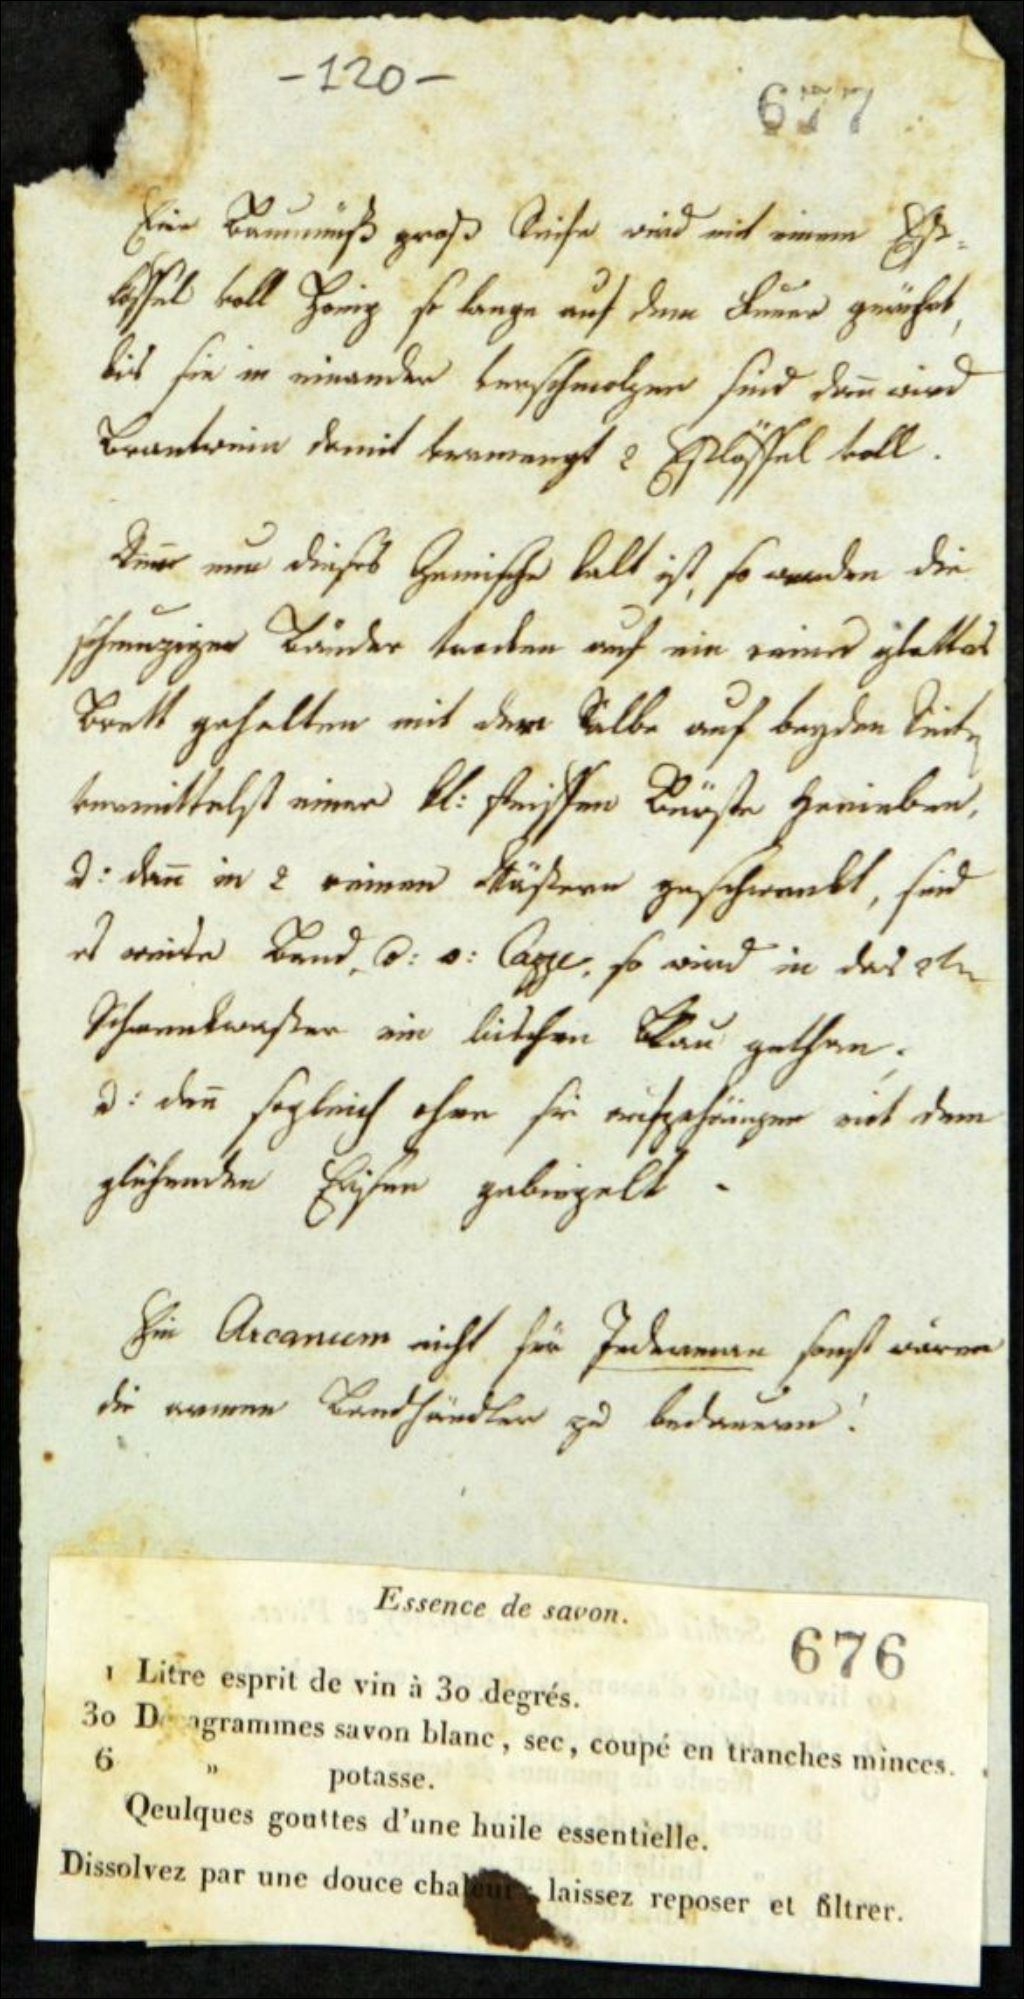 -120-
677
Eine Baumnuß groß Seife wird mit einem Eß=
löffel voll Honig so lange auf dem Feuer gerührt,
bis sie in einander verschmolzen sind dañ wird
Brantwein damit vermengt 2 Eßlöffel voll.
Wenn nun dieses Gemische kalt ist, so werden die
schmuzigen Bänder trocken auf ein reines glattes
Brett gehalten mit der Salbe auf beyden Seiten
vermittelst einer kl: steiffen Bürste gerieben,
u: dañ in 2 reinen Wäßern geschwenkt, sind
es weiße Band, u: o: so wird in das 2te
Schwenkwaßer ein bischen Blau gethan,
u: dañ sogleich ohne sie aufzuhängen mit dem
glühenden Eisen gebiegelt.
Ein Arcanum nicht für Jederman sonst wären
die armen Bandhändler zu bedauern!
Essence de savon.
676
1 Litre esprit de vin à 30 degrés.
30 Décagrammes savon blanc, sec, coupé en tranches minces.
6 " potasse.
Qeulques gouttes d'une huile essentielle.
Dissolvez par une douce chaleur, laissez reposer et filtrer.